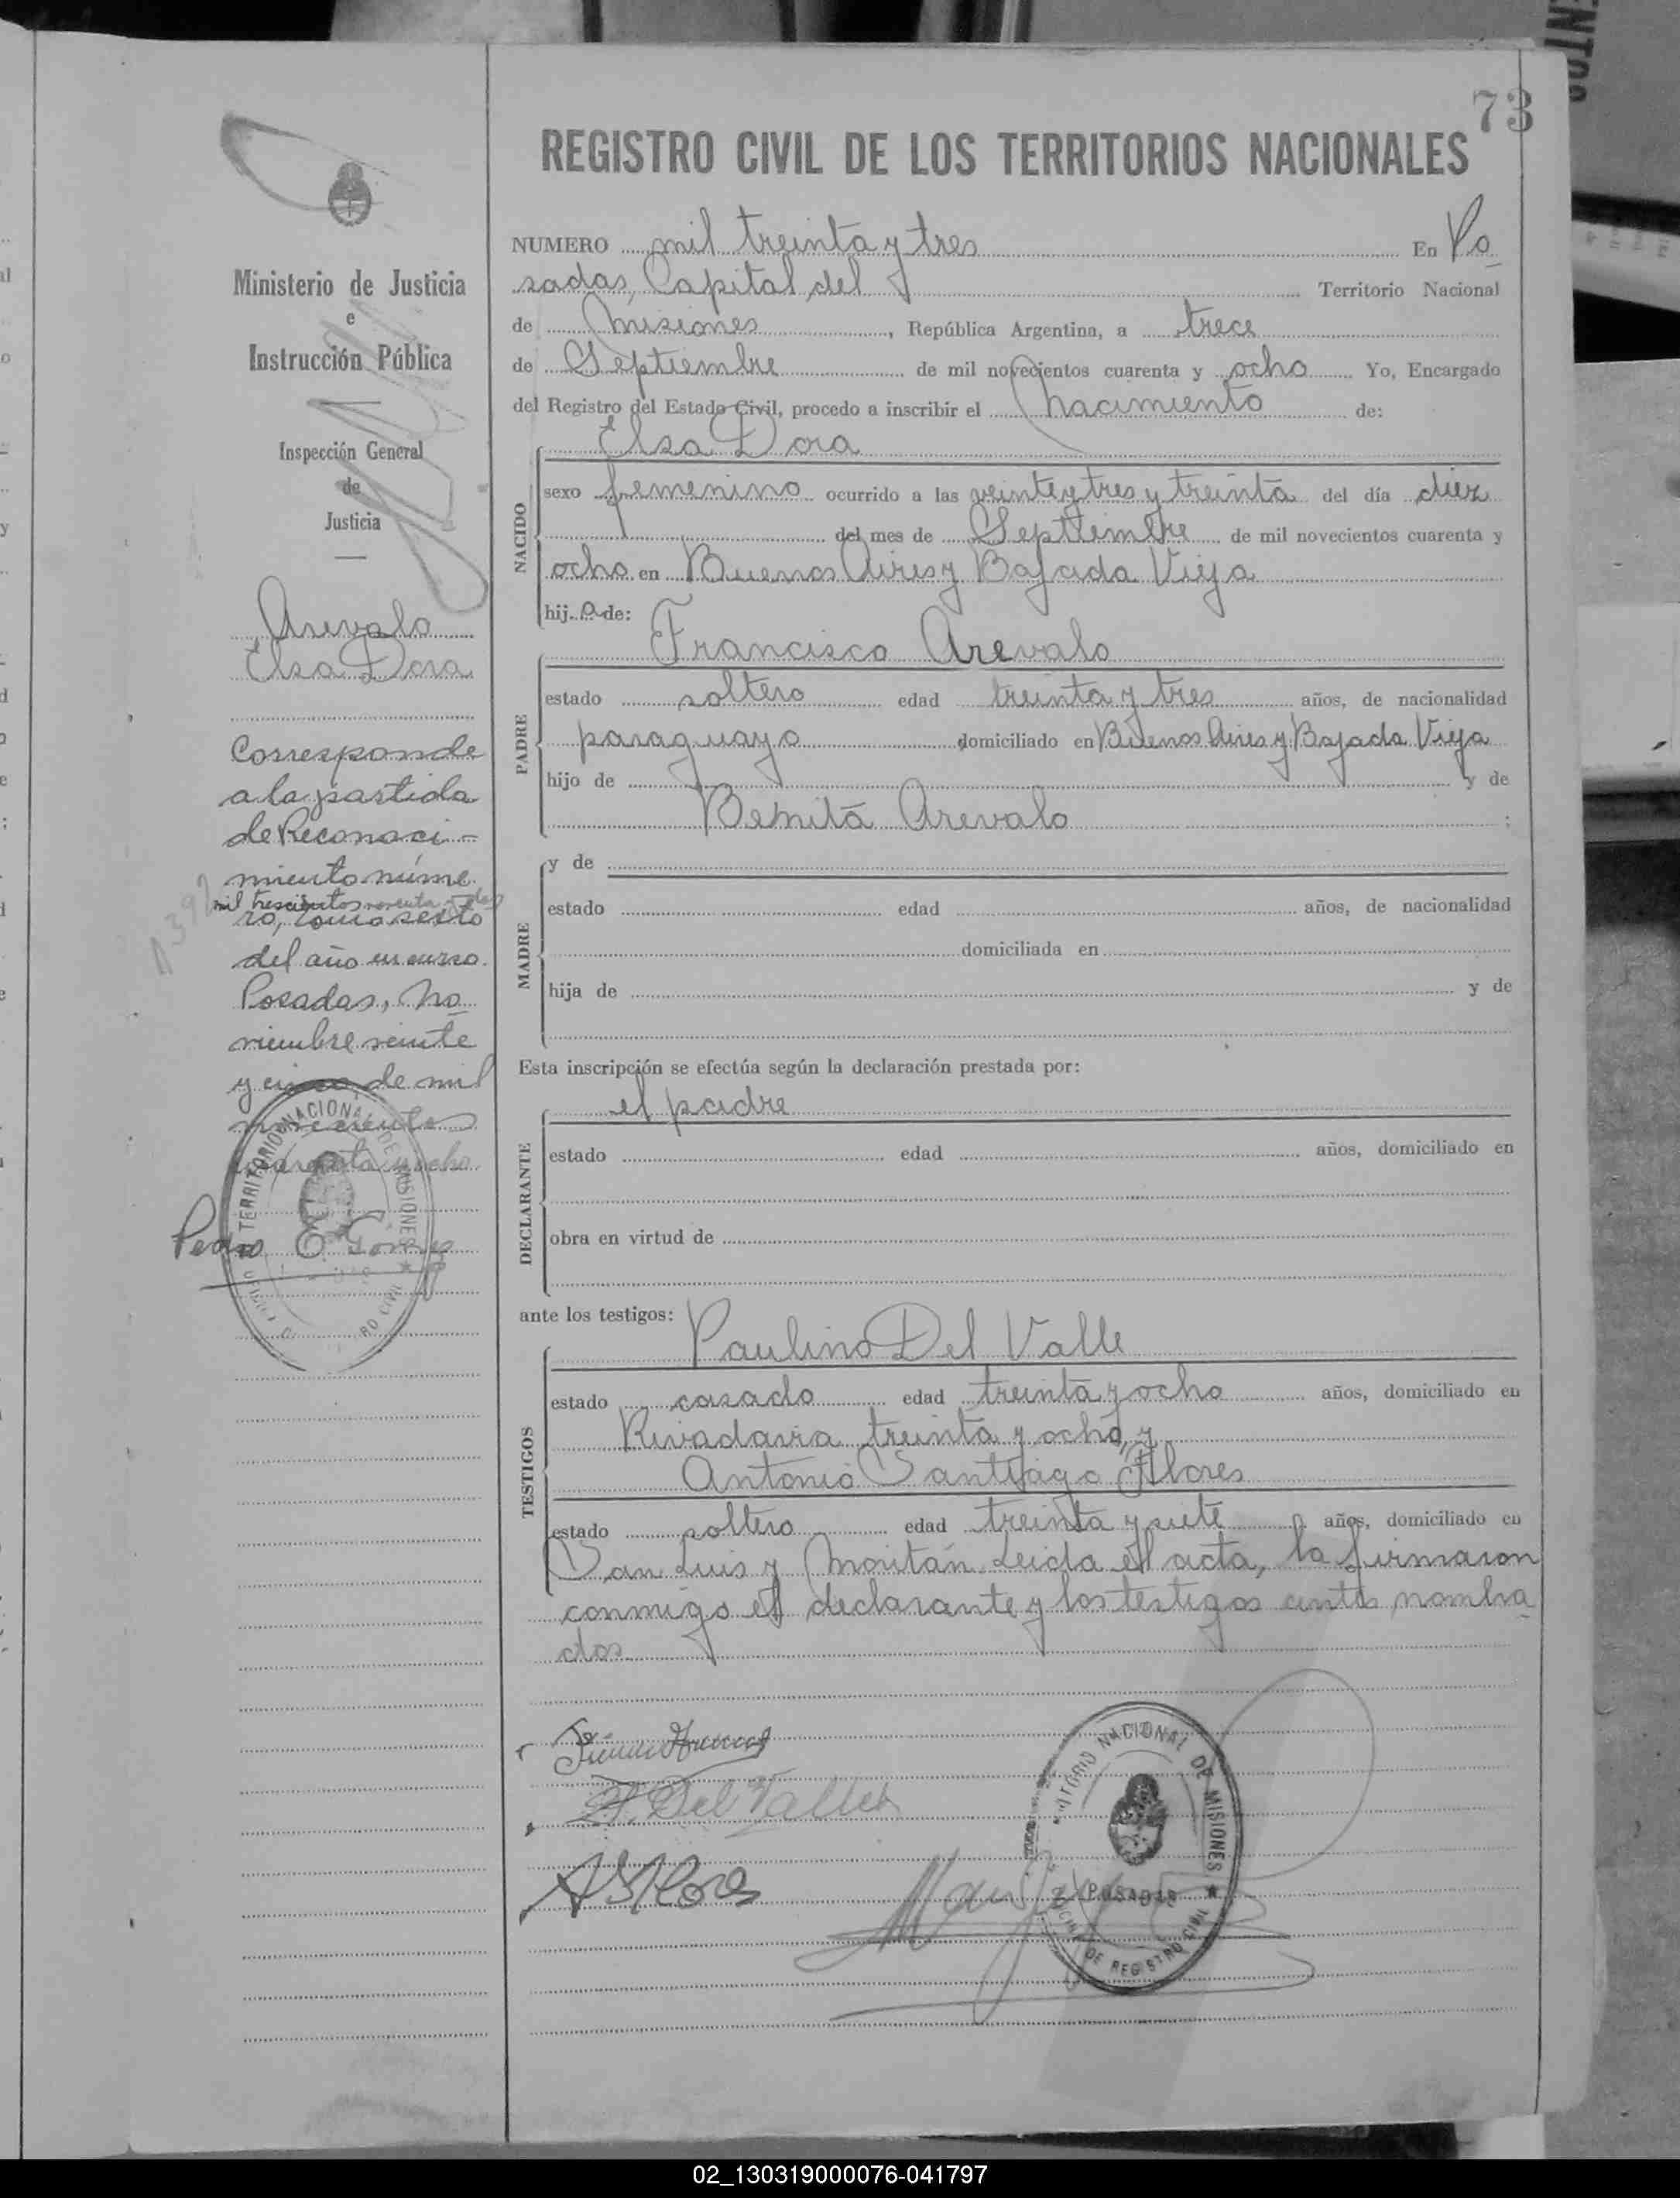 73
REGISTRO CIVIL DE LOS TERRITORIOS NACIONALES
NUMERO mil treinta y tres En Po
sadas, Capital del Territorio Nacional
de Misiones, República Argentina, a trece
de Septiembre de mil novecientos cuarenta y ocho Yo, Encargado
del Registro del Estado Civil, procedo a inscribir el nacimiento de:
NACIDO
Elsa Dora
sexo femenino ocurrido a las veinte y tres y treinta del día diez
del mes de Septiembre de mil novecientos cuarenta y
ocho en Buenos Aires y Bajada Vieja
hij a de:
PADRE
Francisco Arevalo
estado soltero edad treinta y tres años, de nacionalidad
paraguayo domiciliado en Buenos Aires y Bajada Vieja
hijo de y de
Benita Arevalo ;
MADRE
y de
estado edad años, de nacionalidad
domiciliada en
hija de y de
Esta inscripción se efectúa según la declaración prestada por:
DECLARANTE
el padre
estado edad años, domiciliado en
obra en virtud de
ante los testigos:
TESTIGOS
Paulino Del Valle
estado casado edad treinta y ocho años, domiciliado en
Rivadavia treinta y ocho, y
Antonio Santiago Flores
estado soltero edad treinta y siete años, domiciliado en
San Luis y Moritán Leida el acta, la firmaron
conmigo el declarante y los testigos antes nombra
dos
P. Del Valle
A S Flores
TERRITORIO NACIONAL DE MISIONES
POSADAS
OFICINA DE REGISTRO CIVIL
Ministerio de Justicia
e
Instrucción Pública
Inspección General
de
Justicia
Arevalo
Elsa Dora
Corresponde
a la partida
de Reconoci-
miento núme
mil trescientos noventa y dos
ro, tomo sexto
del año en curso.
Posadas, No
viembre veinte
y cinco de mil
novecientos
cuarenta y ocho.
TERRITORIO NACIONAL DE MISIONES
Pedro E.
02_130319000076-041797